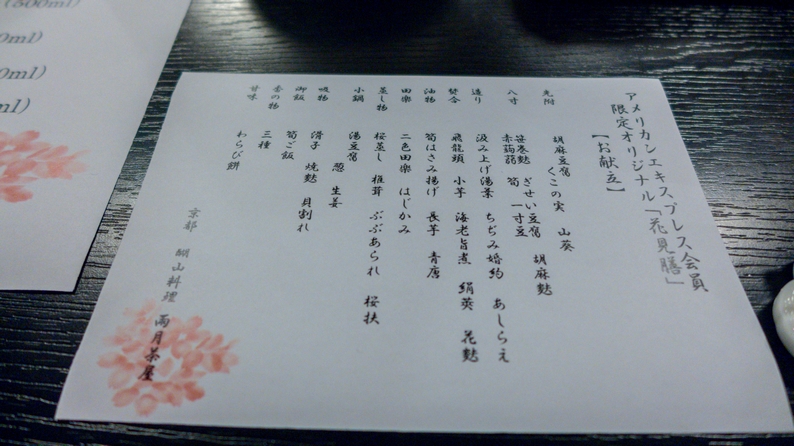 アメリカンエキスプレス会員
限定オリジナル「花見膳」
【お献立】
先附
胡麻豆腐 山葵
くこの実
八寸
笹巻麩 ぎせい豆腐 胡麻麩
赤蒟蒻 筍 一寸豆
造り
汲み上げ湯葉 ちぢみ婚約 あしらえ
焚合
飛龍頭 小芋 海老旨煮 絹莢 花麩
油物
筍はさみ揚げ 長芋 青唐
田楽
二色田楽 はじかみ
蒸し物
桜蒸し 椎茸 ぶぶあられ 桜扶
小鍋
湯豆腐
葱 生姜
吸物
滑子 焼麩 貝割れ
御飯
筍ご飯
香の物
三種
甘味
わらび餅
京都 醍山料理 雨月茶屋
(500ml)
0ml)
0ml)
ml)